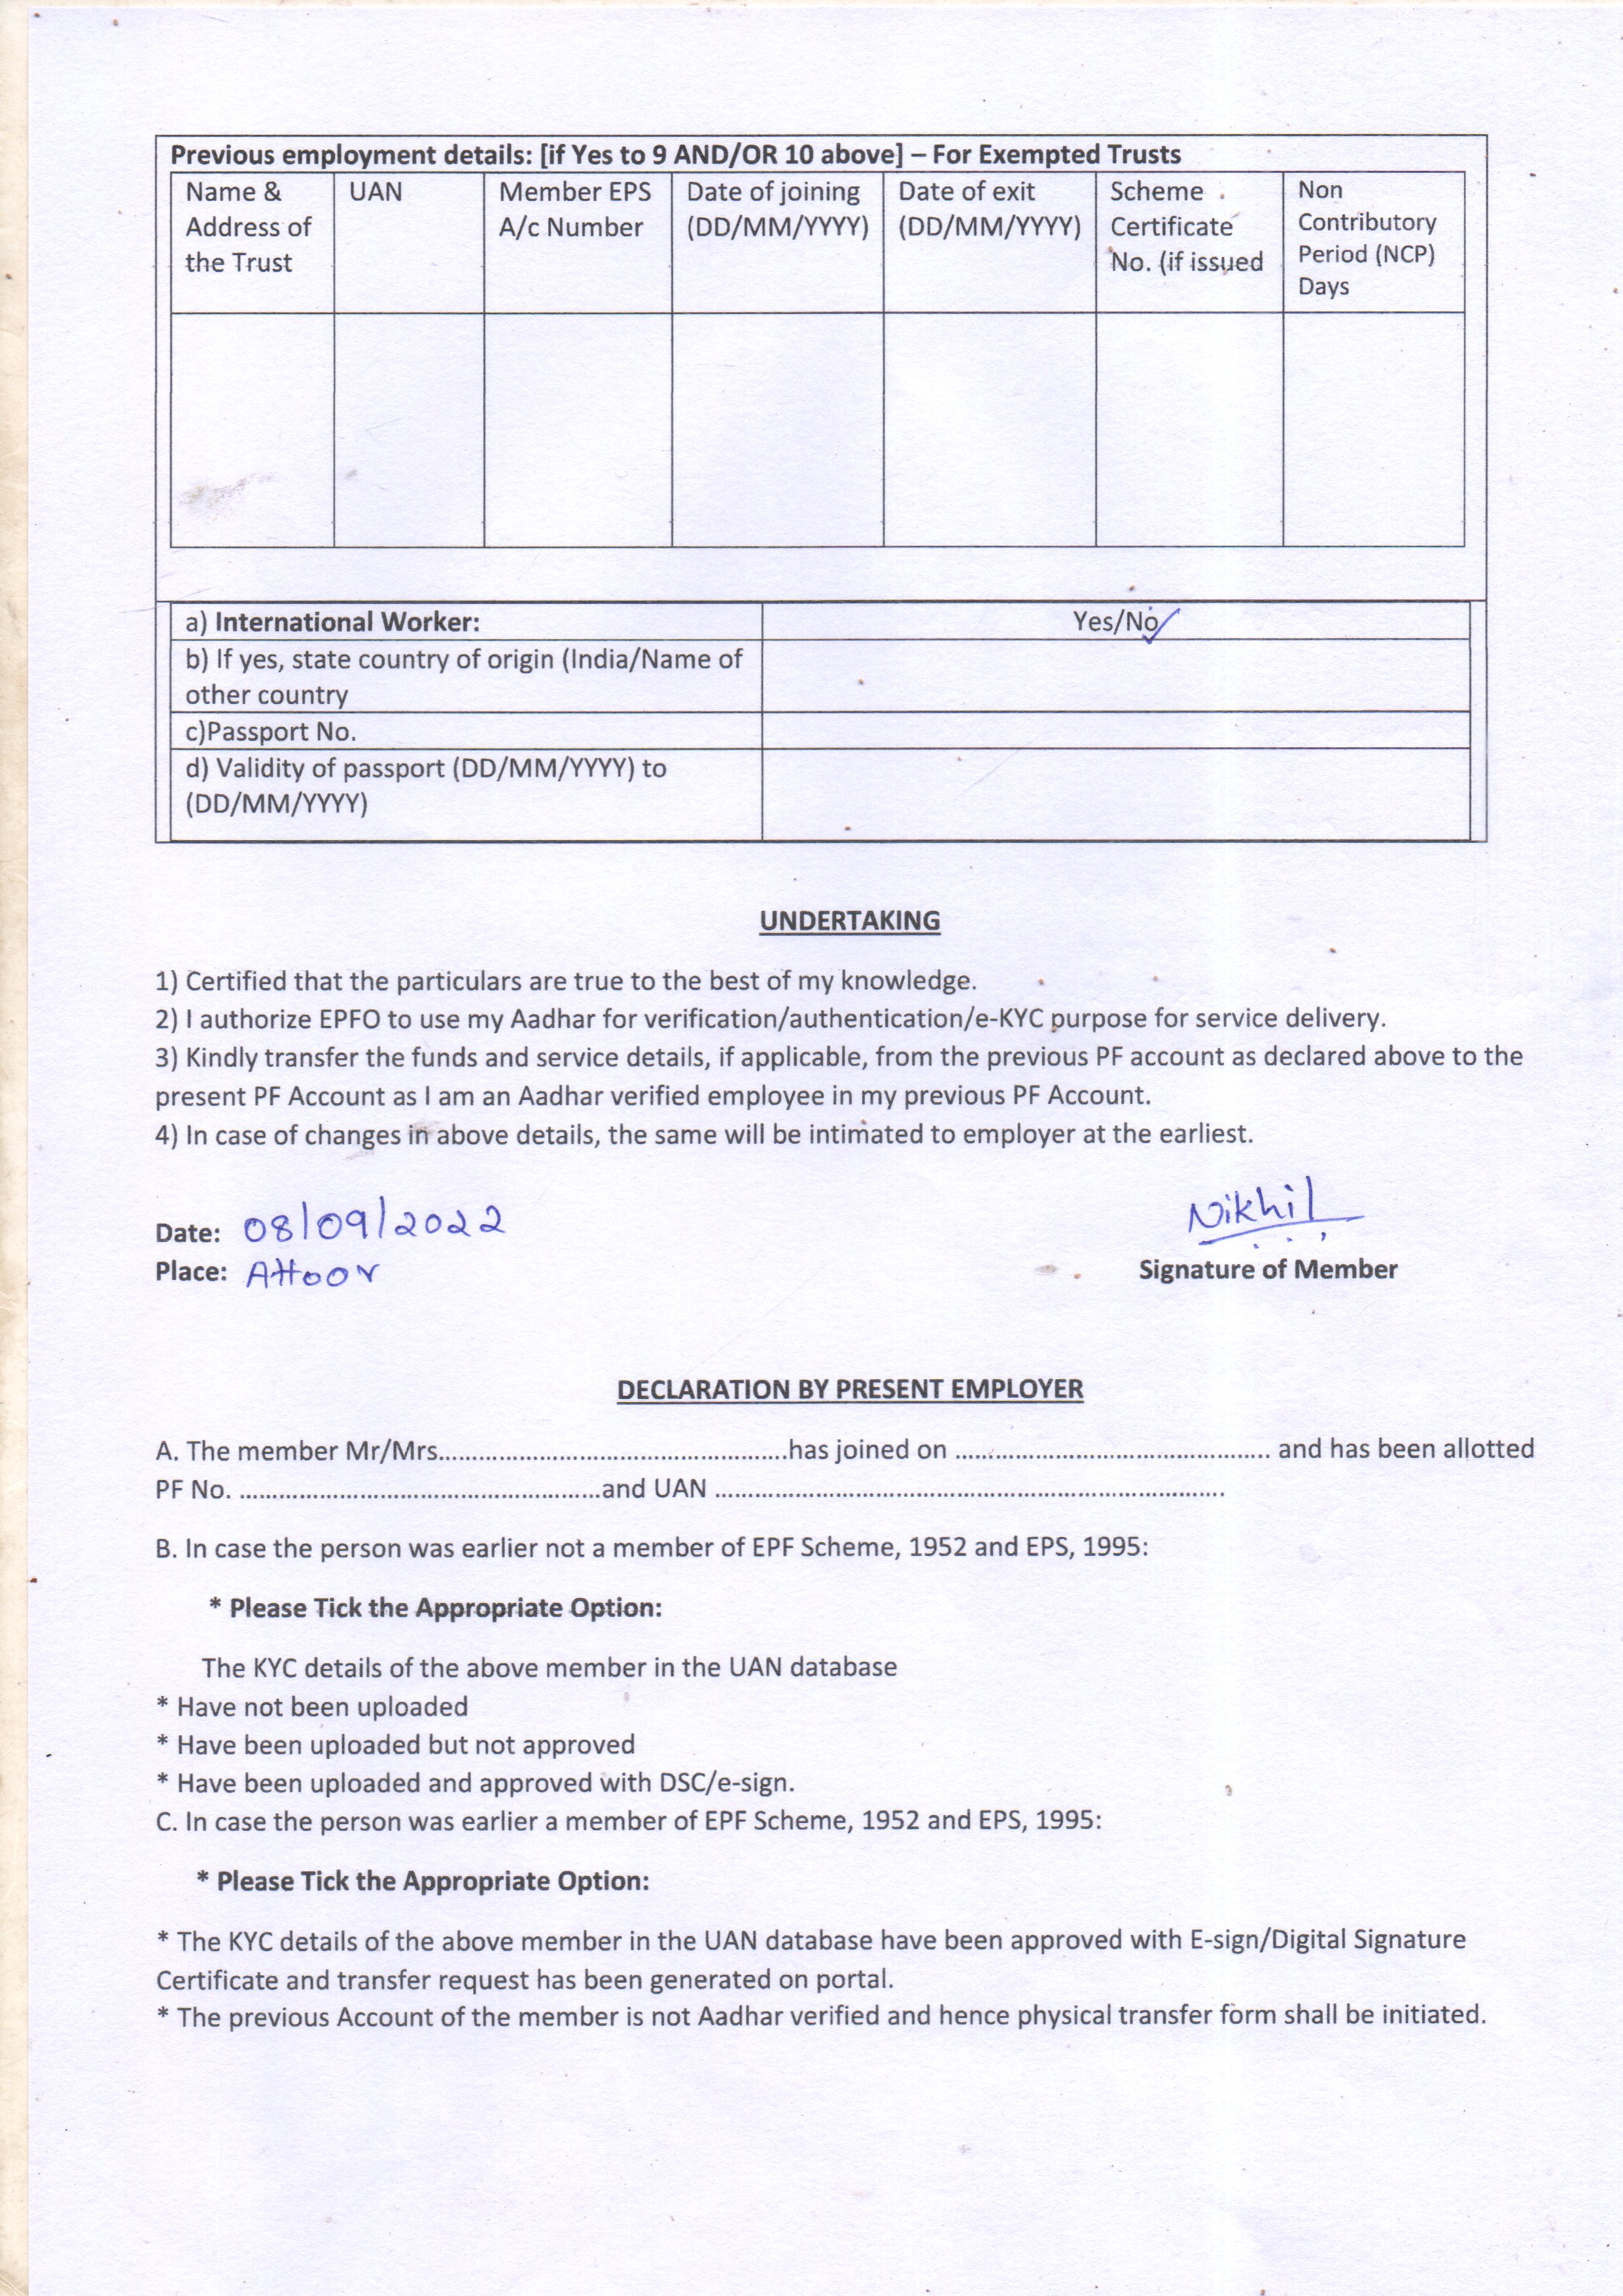 Previous employment details: [if Yes to 9 AND/OR 10 above] – For Exempted Trusts
Name & Address of the Trust
UAN
Member EPS A/c Number
Date of joining (DD/MM/YYYY)
Date of exit (DD/MM/YYYY)
Scheme Certificate No. (if issued
Non Contributory Period (NCP) Days
a) International Worker: Yes/No ✓
b) If yes, state country of origin (India/Name of
other country
c)Passport No.
d) Validity of passport (DD/MM/YYYY) to
(DD/MM/YYYY)
UNDERTAKING
1) Certified that the particulars are true to the best of my knowledge.
2) I authorize EPFO to use my Aadhar for verification/authentication/e-KYC purpose for service delivery.
3) Kindly transfer the funds and service details, if applicable, from the previous PF account as declared above to the
present PF Account as I am an Aadhar verified employee in my previous PF Account.
4) In case of changes in above details, the same will be intimated to employer at the earliest.
Nikhil
Date: 08/09/2022
Place: Attoor
Signature of Member
DECLARATION BY PRESENT EMPLOYER
A. The member Mr/Mrs..................................................has joined on ............................................. and has been allotted
PF No. ....................................................and UAN .........................................................................
B. In case the person was earlier not a member of EPF Scheme, 1952 and EPS, 1995:
* Please Tick the Appropriate Option:
The KYC details of the above member in the UAN database
* Have not been uploaded
* Have been uploaded but not approved
* Have been uploaded and approved with DSC/e-sign.
C. In case the person was earlier a member of EPF Scheme, 1952 and EPS, 1995:
* Please Tick the Appropriate Option:
* The KYC details of the above member in the UAN database have been approved with E-sign/Digital Signature
Certificate and transfer request has been generated on portal.
* The previous Account of the member is not Aadhar verified and hence physical transfer form shall be initiated.